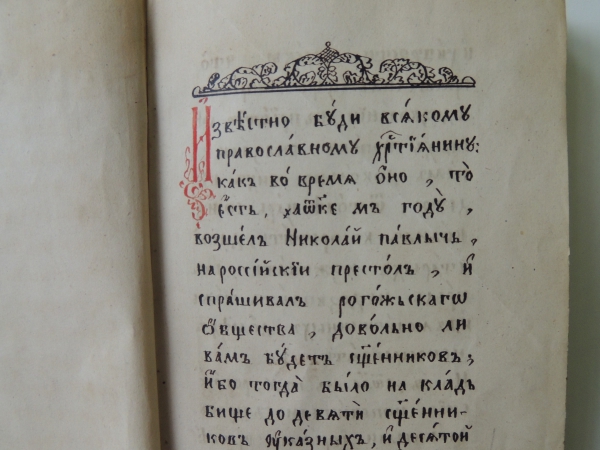 Извѣ́стно бу́ди вся́кому
правосла́вному хрⷭ҇тїа́нину:
ка́къ во́ время ѻ҆́но, то̀
е҆́сть, хаѿке мъ годꙋ̀,
возше́лъ Никола́й па́влычь,
на россі́йскїи престо́лъ, и҆
спра́шивал рого́жьскагѡ
о҆́бщества, дово́льно ли
ва́мъ бу́детъ сщ҃е́нниковъ;
и҆́бо тогда̀ бы́ло на кла́дъ
бище до девѧтѝ сщ҃е́нни-
ко́въ ᲂу҆ка́зныхъ, и҆ десѧ́той